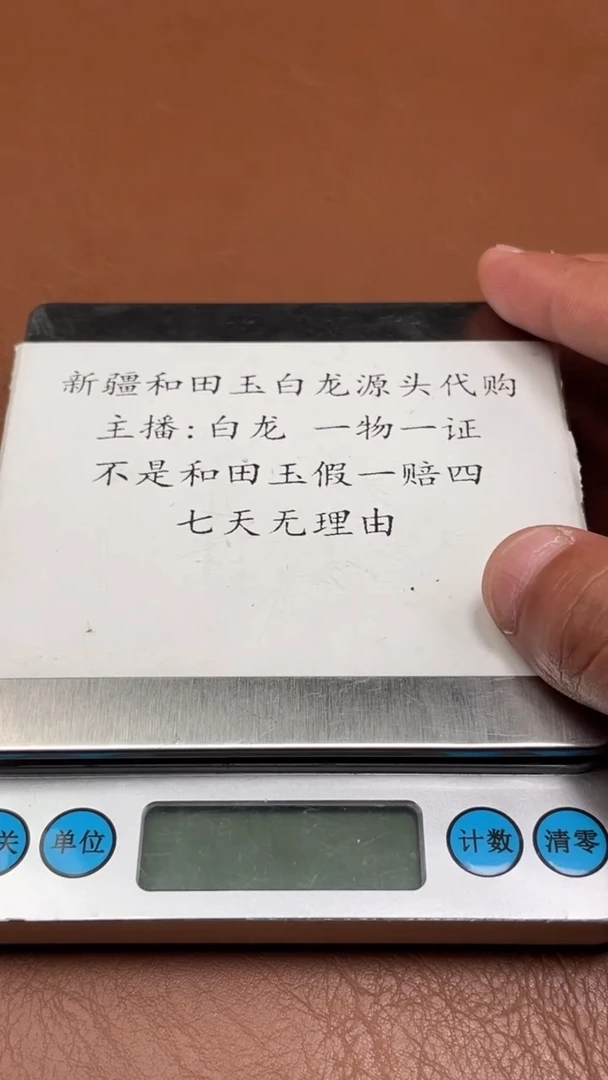 新疆和田玉白龙源头代购
主播:白龙 一物一证
不是和田玉假一赔四
七天无理由
关 单位 计数 清零